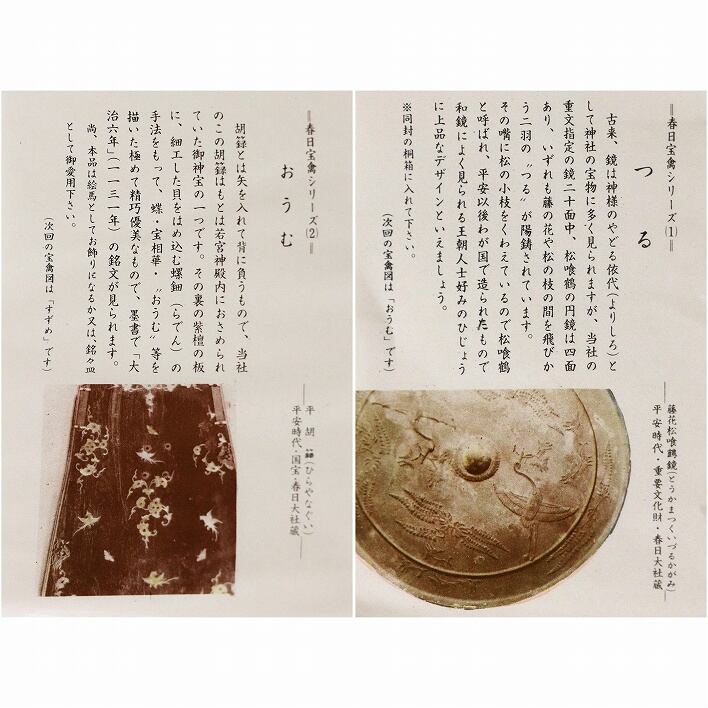 ＝春日宝禽シリーズ⑴＝
つる
古来、鏡は神様のやどる依代（よりしろ）と
して神社の宝物に多く見られますが、当社の
重文指定の鏡二十面中、松喰鶴の円鏡は四面
あり、いずれも藤の花や松の枝の間を飛びか
う二羽の〝つる〟が陽鋳されています。
その嘴に松の小枝をくわえているので松喰鶴
と呼ばれ、平安以後わが国で造られたもので
和鏡によく見られる王朝人士好みのひじょう
に上品なデザインといえましょう。
※同封の桐箱に入れて下さい。
（次回の宝禽図は「おうむ」です）
藤花松喰鶴鏡（とうかまつくいづるかがみ）
平安時代・重要文化財・春日大社蔵
＝春日宝禽シリーズ⑵＝
おうむ
胡籙とは矢を入れて背に負うもので、当社
のこの胡籙はもとは若宮神殿内におさめられ
ていた御神宝の一つです。その裏の紫檀の板
に、細工した貝をはめ込む螺鈿（らでん）の
手法をもって、蝶・宝相華・〝おうむ〟等を
描いた極めて精巧優美なもので、墨書で「大
治六年」（一一三一年）の銘文が見られます。
尚、本品は絵馬としてお飾りになるか又は、銘々皿
として御愛用下さい。
（次回の宝禽図は「すずめ」です）
平胡籙（ひらやなぐい）
平安時代・国宝・春日大社蔵